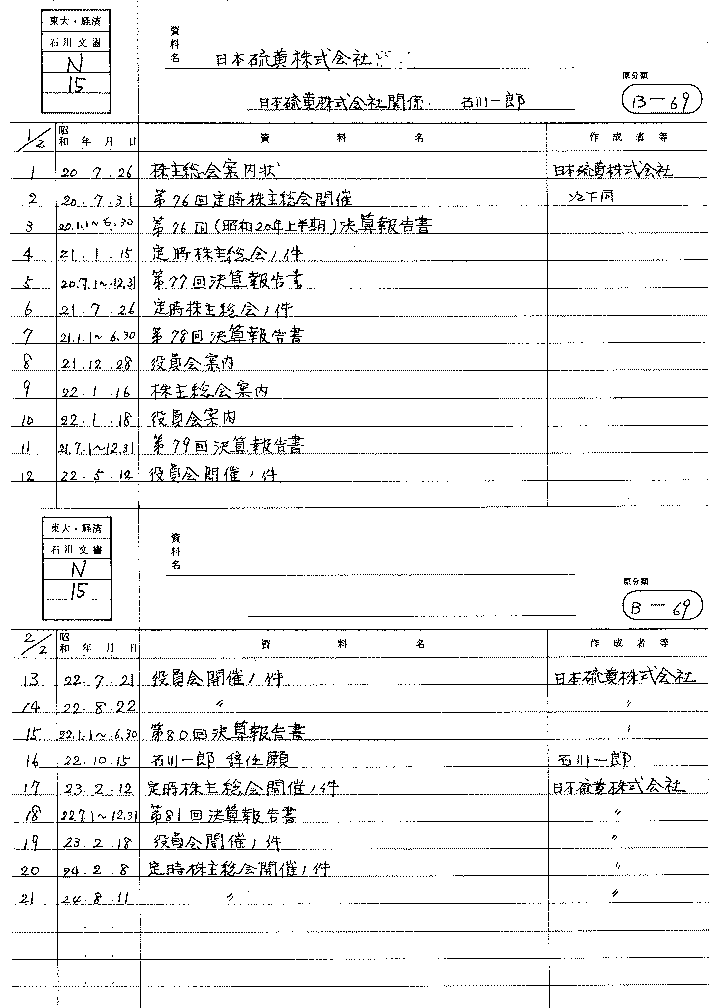 東大・経済
石川文書
N
15
資料名
日本硫黄株式会社
日本硫黄株式会社関係 石川一郎
原分類
B-69
1/2 昭和 年 月 日 資 料 名 作 成 者 等
1 20.7.26 株主総会案内状 日本硫黄株式会社
2 20.7.31 第76回定時株主総会開催 以下同
3 20.1.1~6.30 第76回(昭和20年上半期)決算報告書
4 21.1.15 定時株主総会ノ件
5 20.7.1~12.31 第77回決算報告書
6 21.7.26 定時株主総会ノ件
7 21.1.1~6.30 第78回決算報告書
8 21.12.28 役員会案内
9 22.1.16 株主総会案内
10 22.1.18 役員会案内
11 21.7.1~12.31 第79回決算報告書
12 22.5.12 役員会開催ノ件
東大・経済
石川文書
N
15
資料名
原分類
B-69
2/2 昭和 年 月 日 資 料 名 作 成 者 等
13 22.7.21 役員会開催ノ件 日本硫黄株式会社
14 22.8.22 〃 〃
15 22.1.1~6.30 第80回決算報告書 〃
16 22.10.15 石川一郎 辞任願 石川一郎
17 23.2.12 定時株主総会開催ノ件 日本硫黄株式会社
18 22.7.1~12.31 第81回決算報告書 〃
19 23.2.18 役員会開催ノ件 〃
20 24.2.8 定時株主総会開催ノ件 〃
21 24.8.11 〃 〃